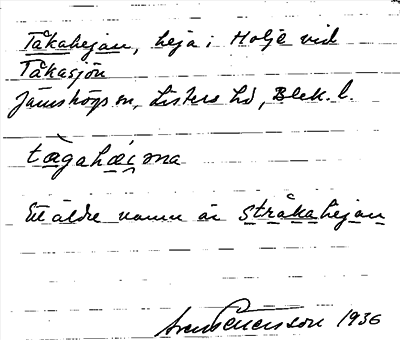 Tåkahejan, heja i Holje vid
Tåkasjön
Jämshögs sn, Listers hd, Blek. l.
tægahæi̯ ma
Ett äldre namn är Stråkahejan
Svensson 1936